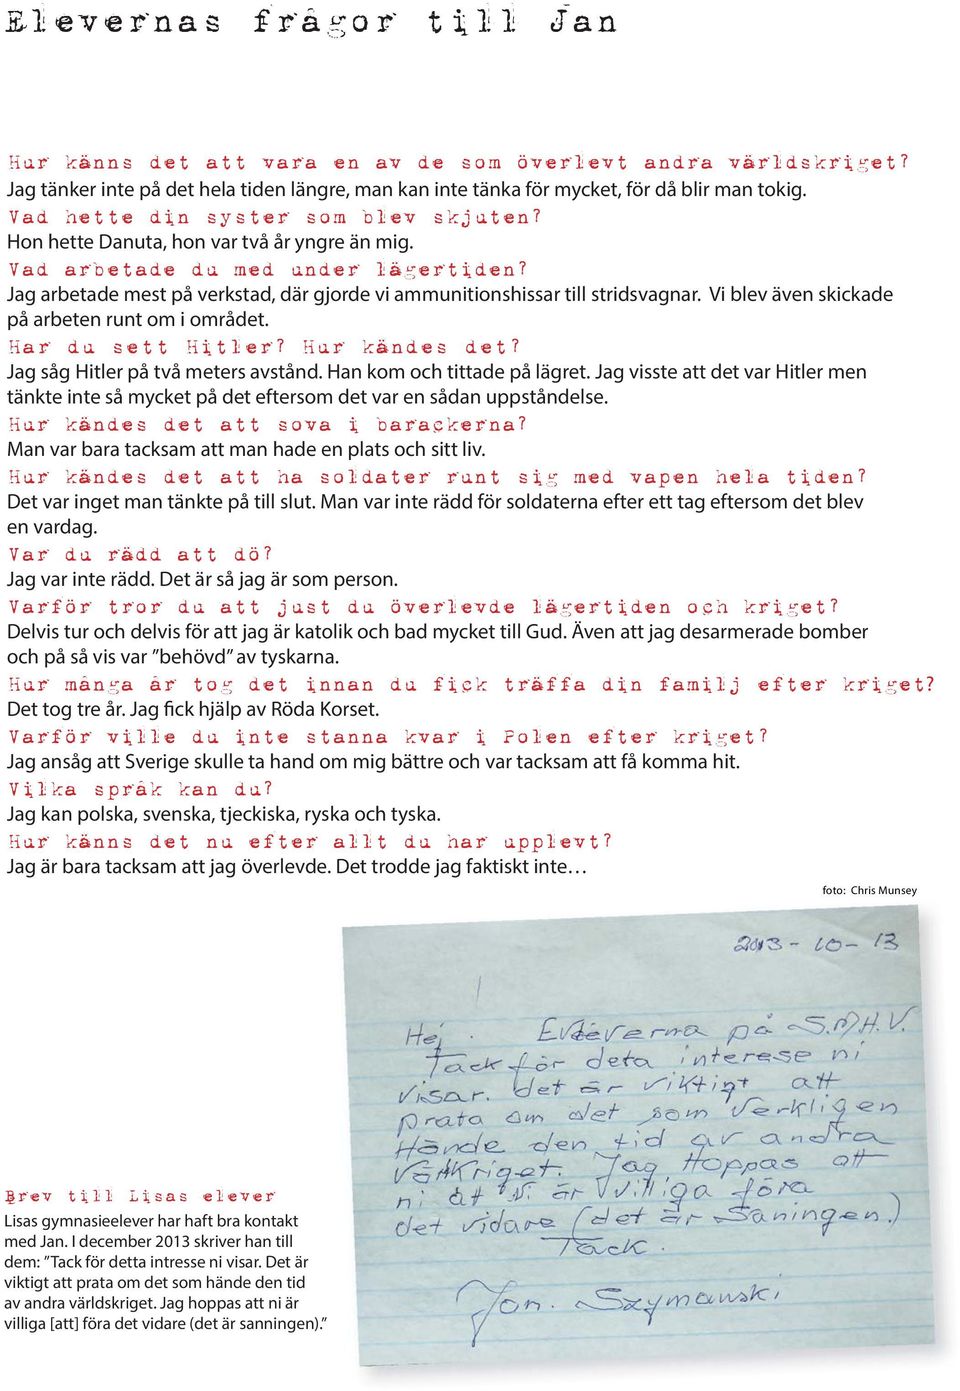 Elevernas frågor till Jan
Hur känns det att vara en av de som överlevt andra världskriget?
Jag tänker inte på det hela tiden längre, man kan inte tänka för mycket, för då blir man tokig.
Vad hette din syster som blev skjuten?
Hon hette Danuta, hon var två år yngre än mig.
Vad arbetade du med under lägertiden?
Jag arbetade mest på verkstad, där gjorde vi ammunitionshissar till stridsvagnar. Vi blev även skickade
på arbeten runt om i området.
Har du sett Hitler? Hur kändes det?
Jag såg Hitler på två meters avstånd. Han kom och tittade på lägret. Jag visste att det var Hitler men
tänkte inte så mycket på det eftersom det var en sådan uppståndelse.
Hur kändes det att sova i barackerna?
Man var bara tacksam att man hade en plats och sitt liv.
Hur kändes det att ha soldater runt sig med vapen hela tiden?
Det var inget man tänkte på till slut. Man var inte rädd för soldaterna efter ett tag eftersom det blev
en vardag.
Var du rädd att dö?
Jag var inte rädd. Det är så jag är som person.
Varför tror du att just du överlevde lägertiden och kriget?
Delvis tur och delvis för att jag är katolik och bad mycket till Gud. Även att jag desarmerade bomber
och på så vis var ”behövd” av tyskarna.
Hur många år tog det innan du fick träffa din familj efter kriget?
Det tog tre år. Jag fick hjälp av Röda Korset.
Varför ville du inte stanna kvar i Polen efter kriget?
Jag ansåg att Sverige skulle ta hand om mig bättre och var tacksam att få komma hit.
Vilka språk kan du?
Jag kan polska, svenska, tjeckiska, ryska och tyska.
Hur känns det nu efter allt du har upplevt?
Jag är bara tacksam att jag överlevde. Det trodde jag faktiskt inte…
foto: Chris Munsey
2013-10-13
Hej. på S.M.H.V.
Tack för deta interese ni
visar. det är viktigt att
prata om det som verkligen
Hände den tid av andra
Jag Hoppas att
ni är villiga föra
det vidare (det är Saningen.)
Tack.
Jan. Szymanski
Brev till Lisas elever
Lisas gymnasieelever har haft bra kontakt
med Jan. I december 2013 skriver han till
dem: ”Tack för detta intresse ni visar. Det är
viktigt att prata om det som hände den tid
av andra världskriget. Jag hoppas att ni är
villiga [att] föra det vidare (det är sanningen).”